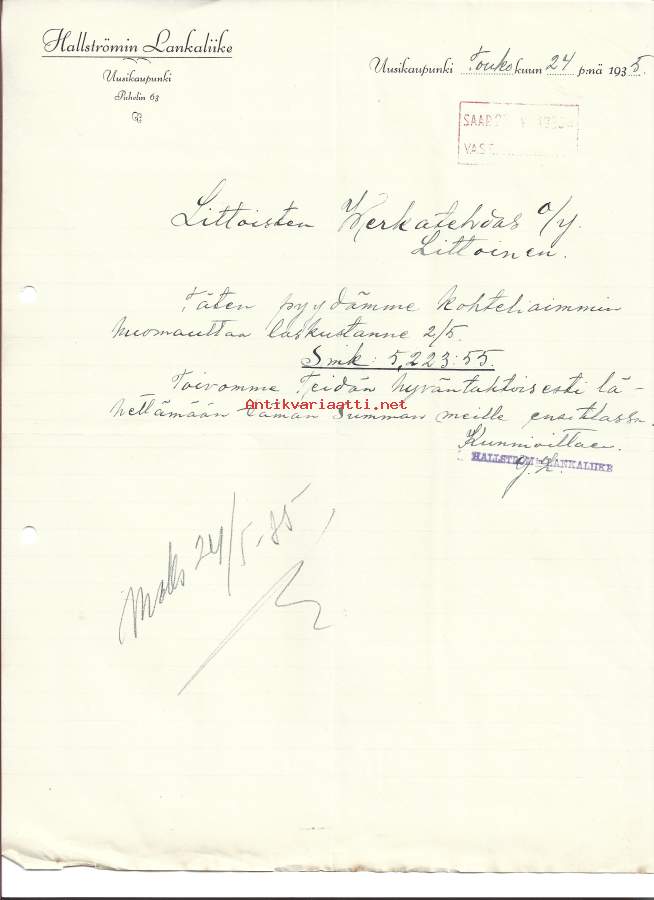 Hallströmin Lankaliike
Uusikaupunki
Puhelin 63
Uusikaupunki Touko kuun 24 p:nä 1935.
SAAP.
VAST.
Littoisten Verkatehdas o/y.
Littoinen.
Täten pyydämme kohteliaimmin
huomauttaa laskustanne 2/5.
Smk: 5,223:55.
Toivomme Teidän hyväntahtoisesti lä-
hettämään tämän summan meille ensitilassa.
Antikvariaatti.net
Kunnioittaen.
HALLSTRÖMIN LANKALIIKE
Maks 24/5-35